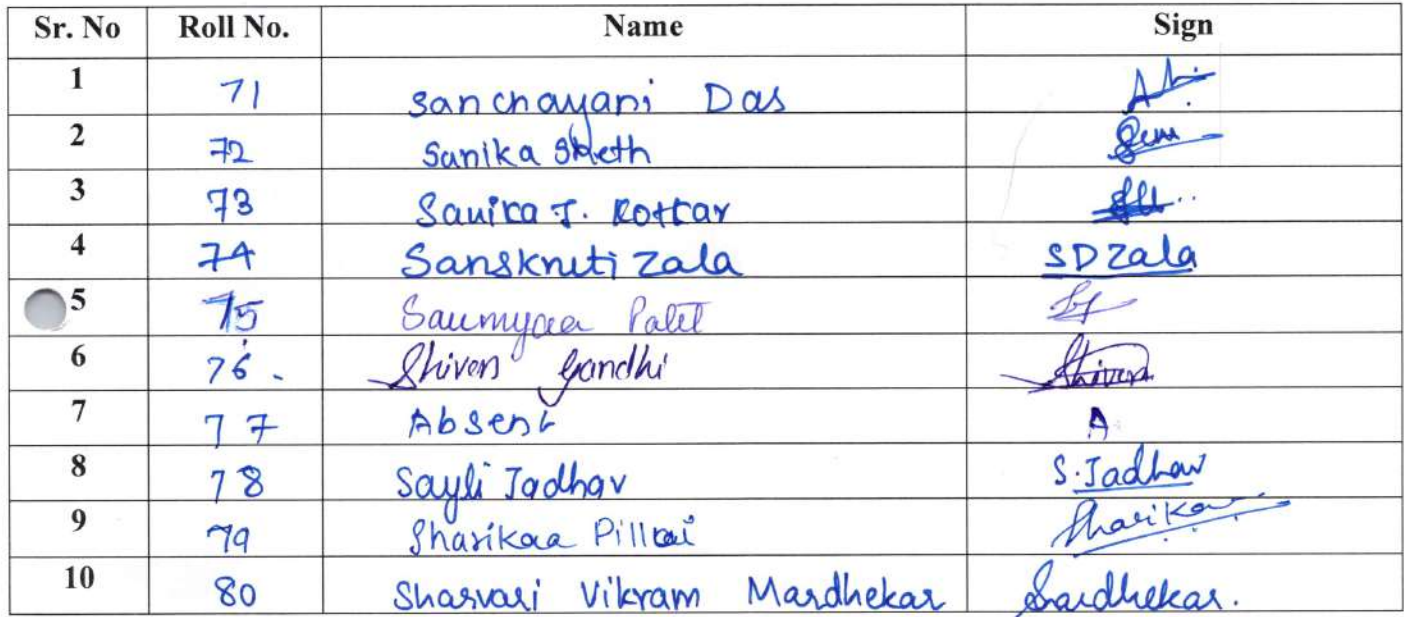 Sr. No Roll No. Name Sign
1 71 Sanchayani Das
2 72 Sanika Sheth
3 73 Sanika J. Kotkar
4 74 Sanskruti Zala SDZala
5 75 Saumyaa Patel
6 76. Shiven Gandhi Shiven
7 77 Absent A
8 78 Sayli Jadhav S.Jadhav
9 79 Sharikaa Pillai Sharikaa
10 80 Sharvari Vikram Mardhekar Mardhekar.